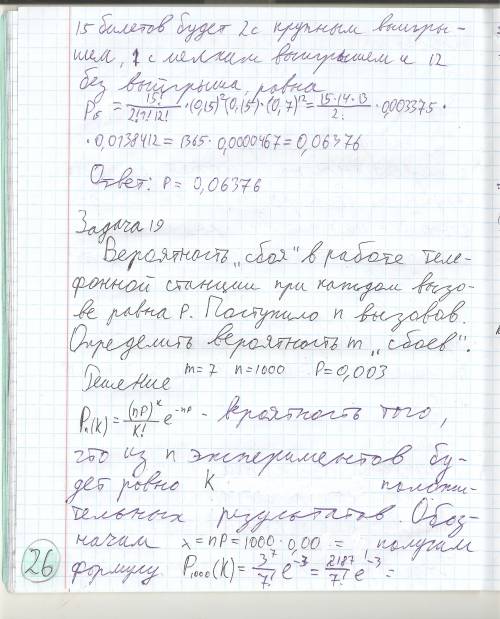 15 билетов будет 2 с крупным выигры-
шем, 1 с мелким выигрышем и 12
без выигрыша, равна
P₁₅ = 15!/2!1!12! · (0,15)²(0,15) · (0,7)¹² = 15·14·13/2! · 0,003375 ·
· 0,0138412 = 1365 · 0,0000467 = 0,06376
Ответ: P = 0,06376
Задача 19
Вероятность „сбоя" в работе теле-
фонной станции при каждом вызо-
ве равна P. Поступило n вызовов.
Определить вероятность m „сбоев".
Решение m=7 n=1000 P=0,003
Pₙ(K) = (nP)ᴷ/K! e⁻ⁿᵖ - вероятность того,
что из n экспериментов бу-
дет ровно K положи-
тельных результатов. Обоз-
начим λ = nP = 1000 · 0,00 = получим
формулу P₁₀₀₀(K) = 3⁷/7! e⁻³ = 2187/7! e⁻³ =
26